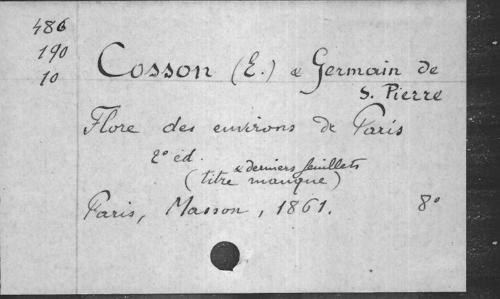 486
190
10
Cosson (E.) & Germain de
S. Pierre
Flore des environs de Paris
2e éd.
& derniers feuillets
(titre manque)
Paris, Masson, 1861. 8°